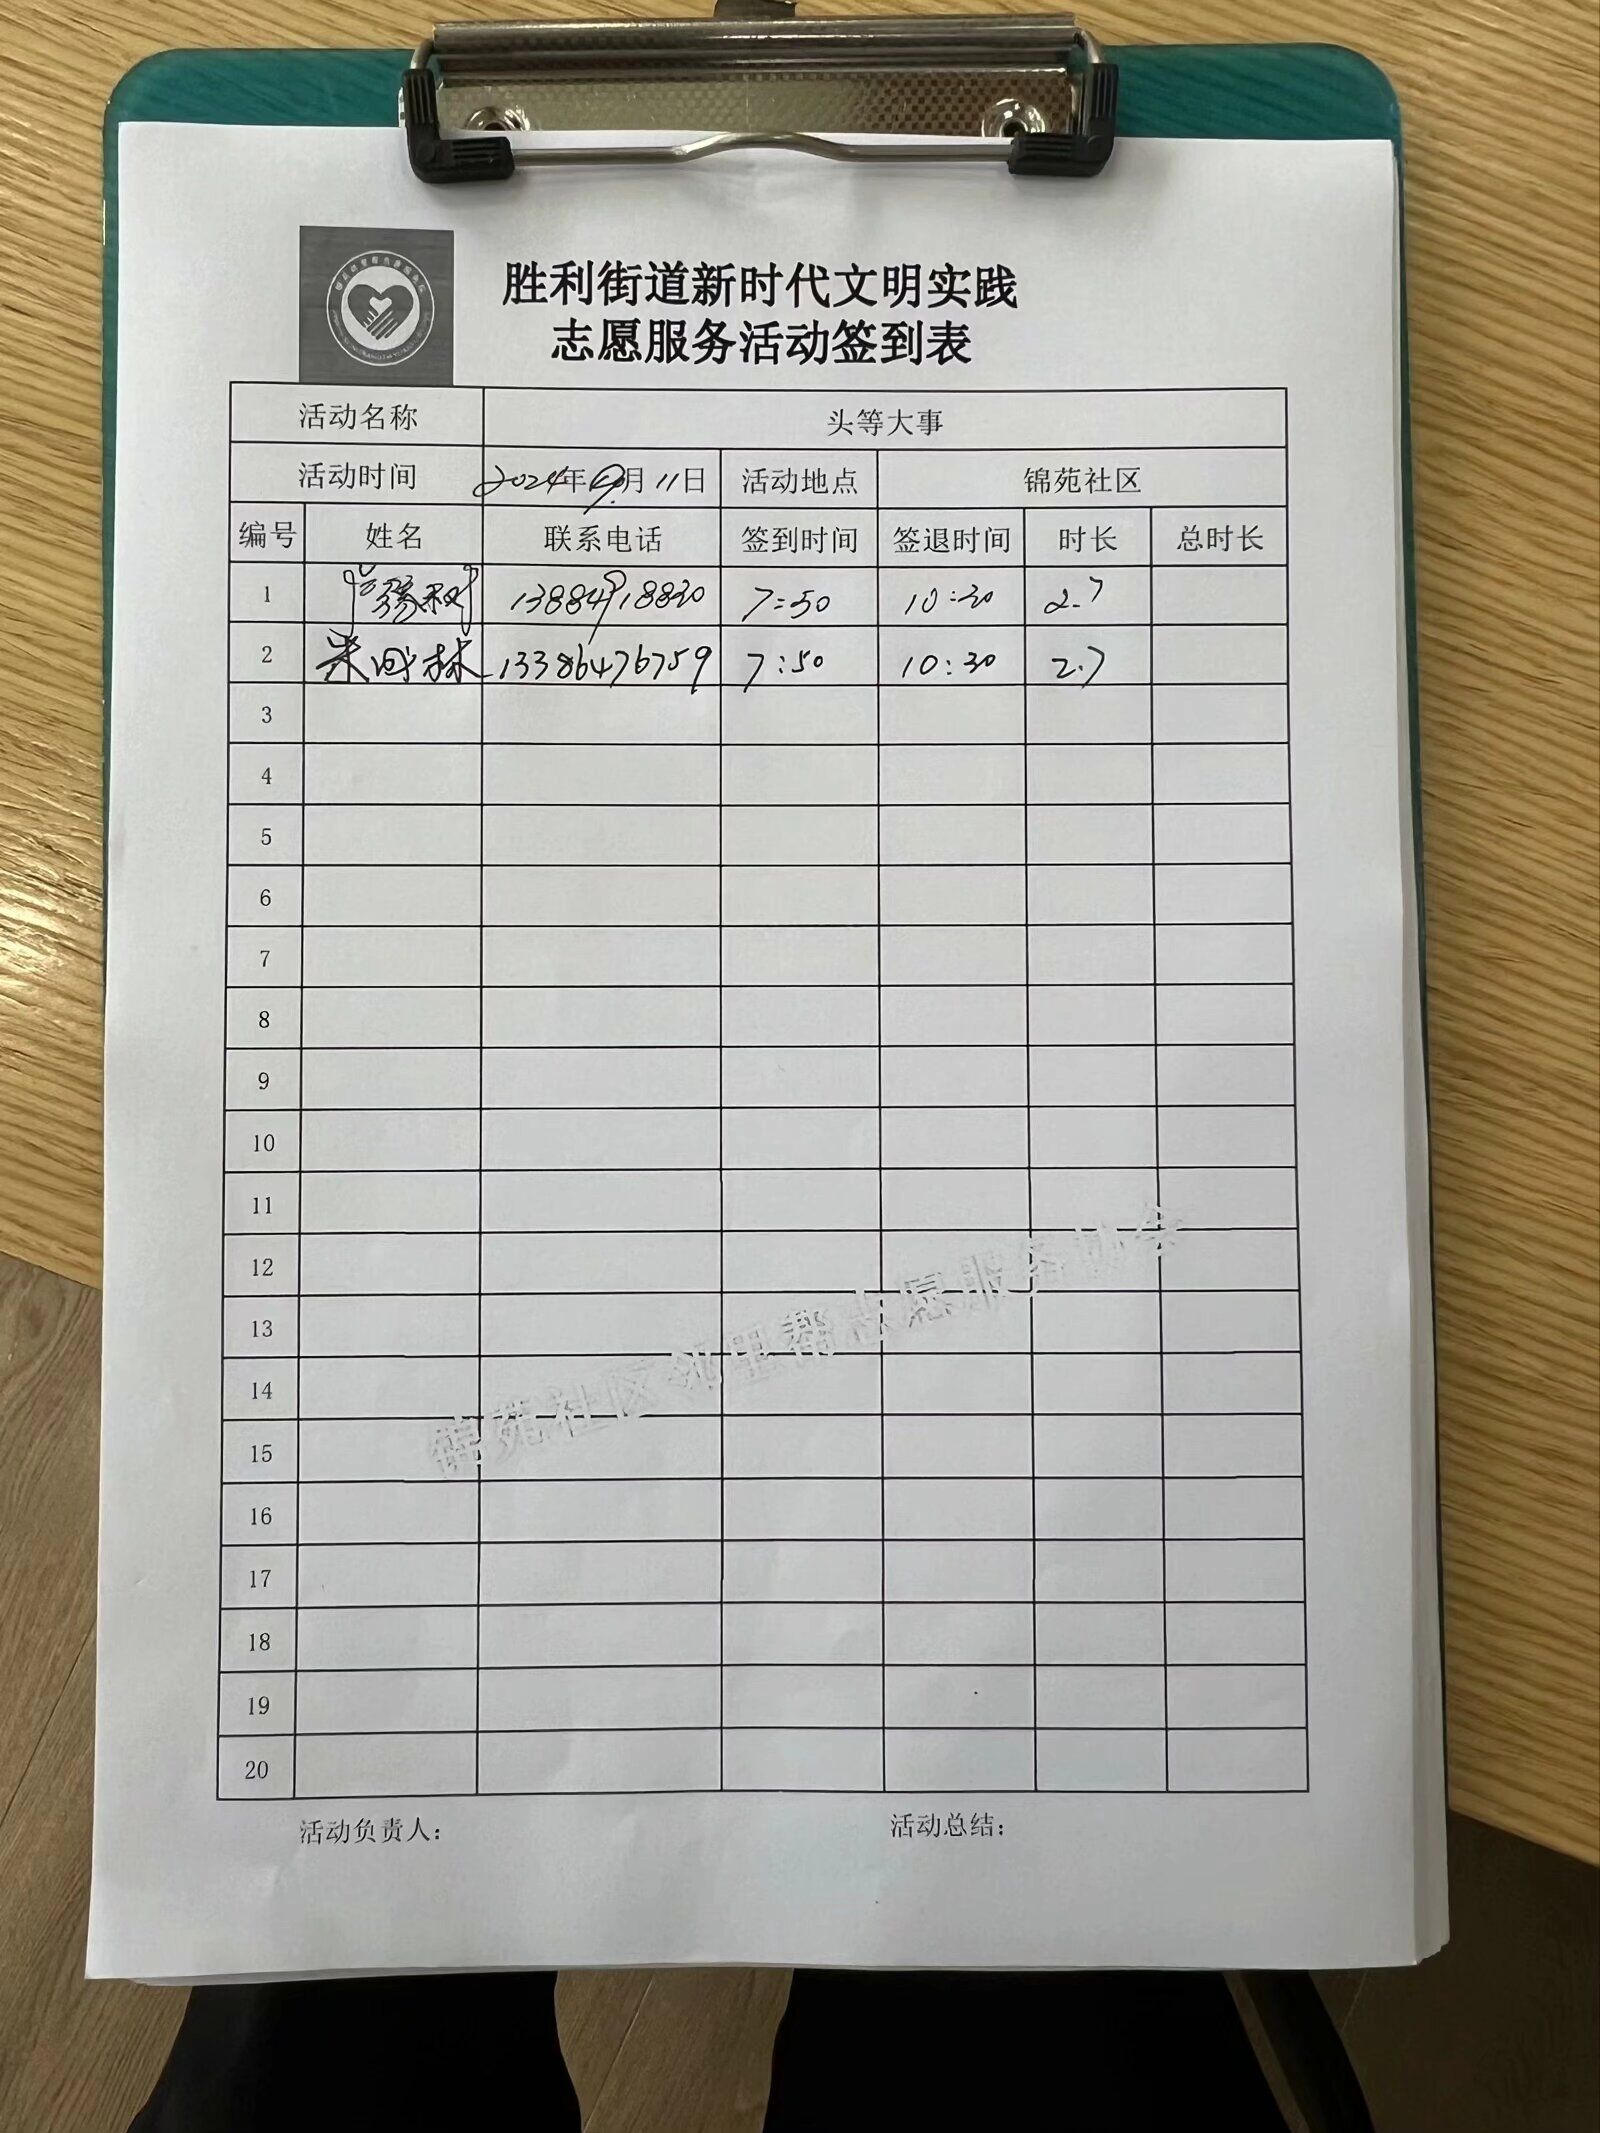 胜利街道新时代文明实践
志愿服务活动签到表
活动名称 头等大事
活动时间 2024年9月11日 活动地点 锦苑社区
编号 姓名 联系电话 签到时间 签退时间 时长 总时长
1 13884918830 7:50 10:30 2.7
2 林 13386476759 7:50 10:30 2.7
3
4
5
6
7
8
9
10
11
12
13
14
15
16
17
18
19
20
锦苑社区邻里帮志愿服务协会
活动负责人： 活动总结：